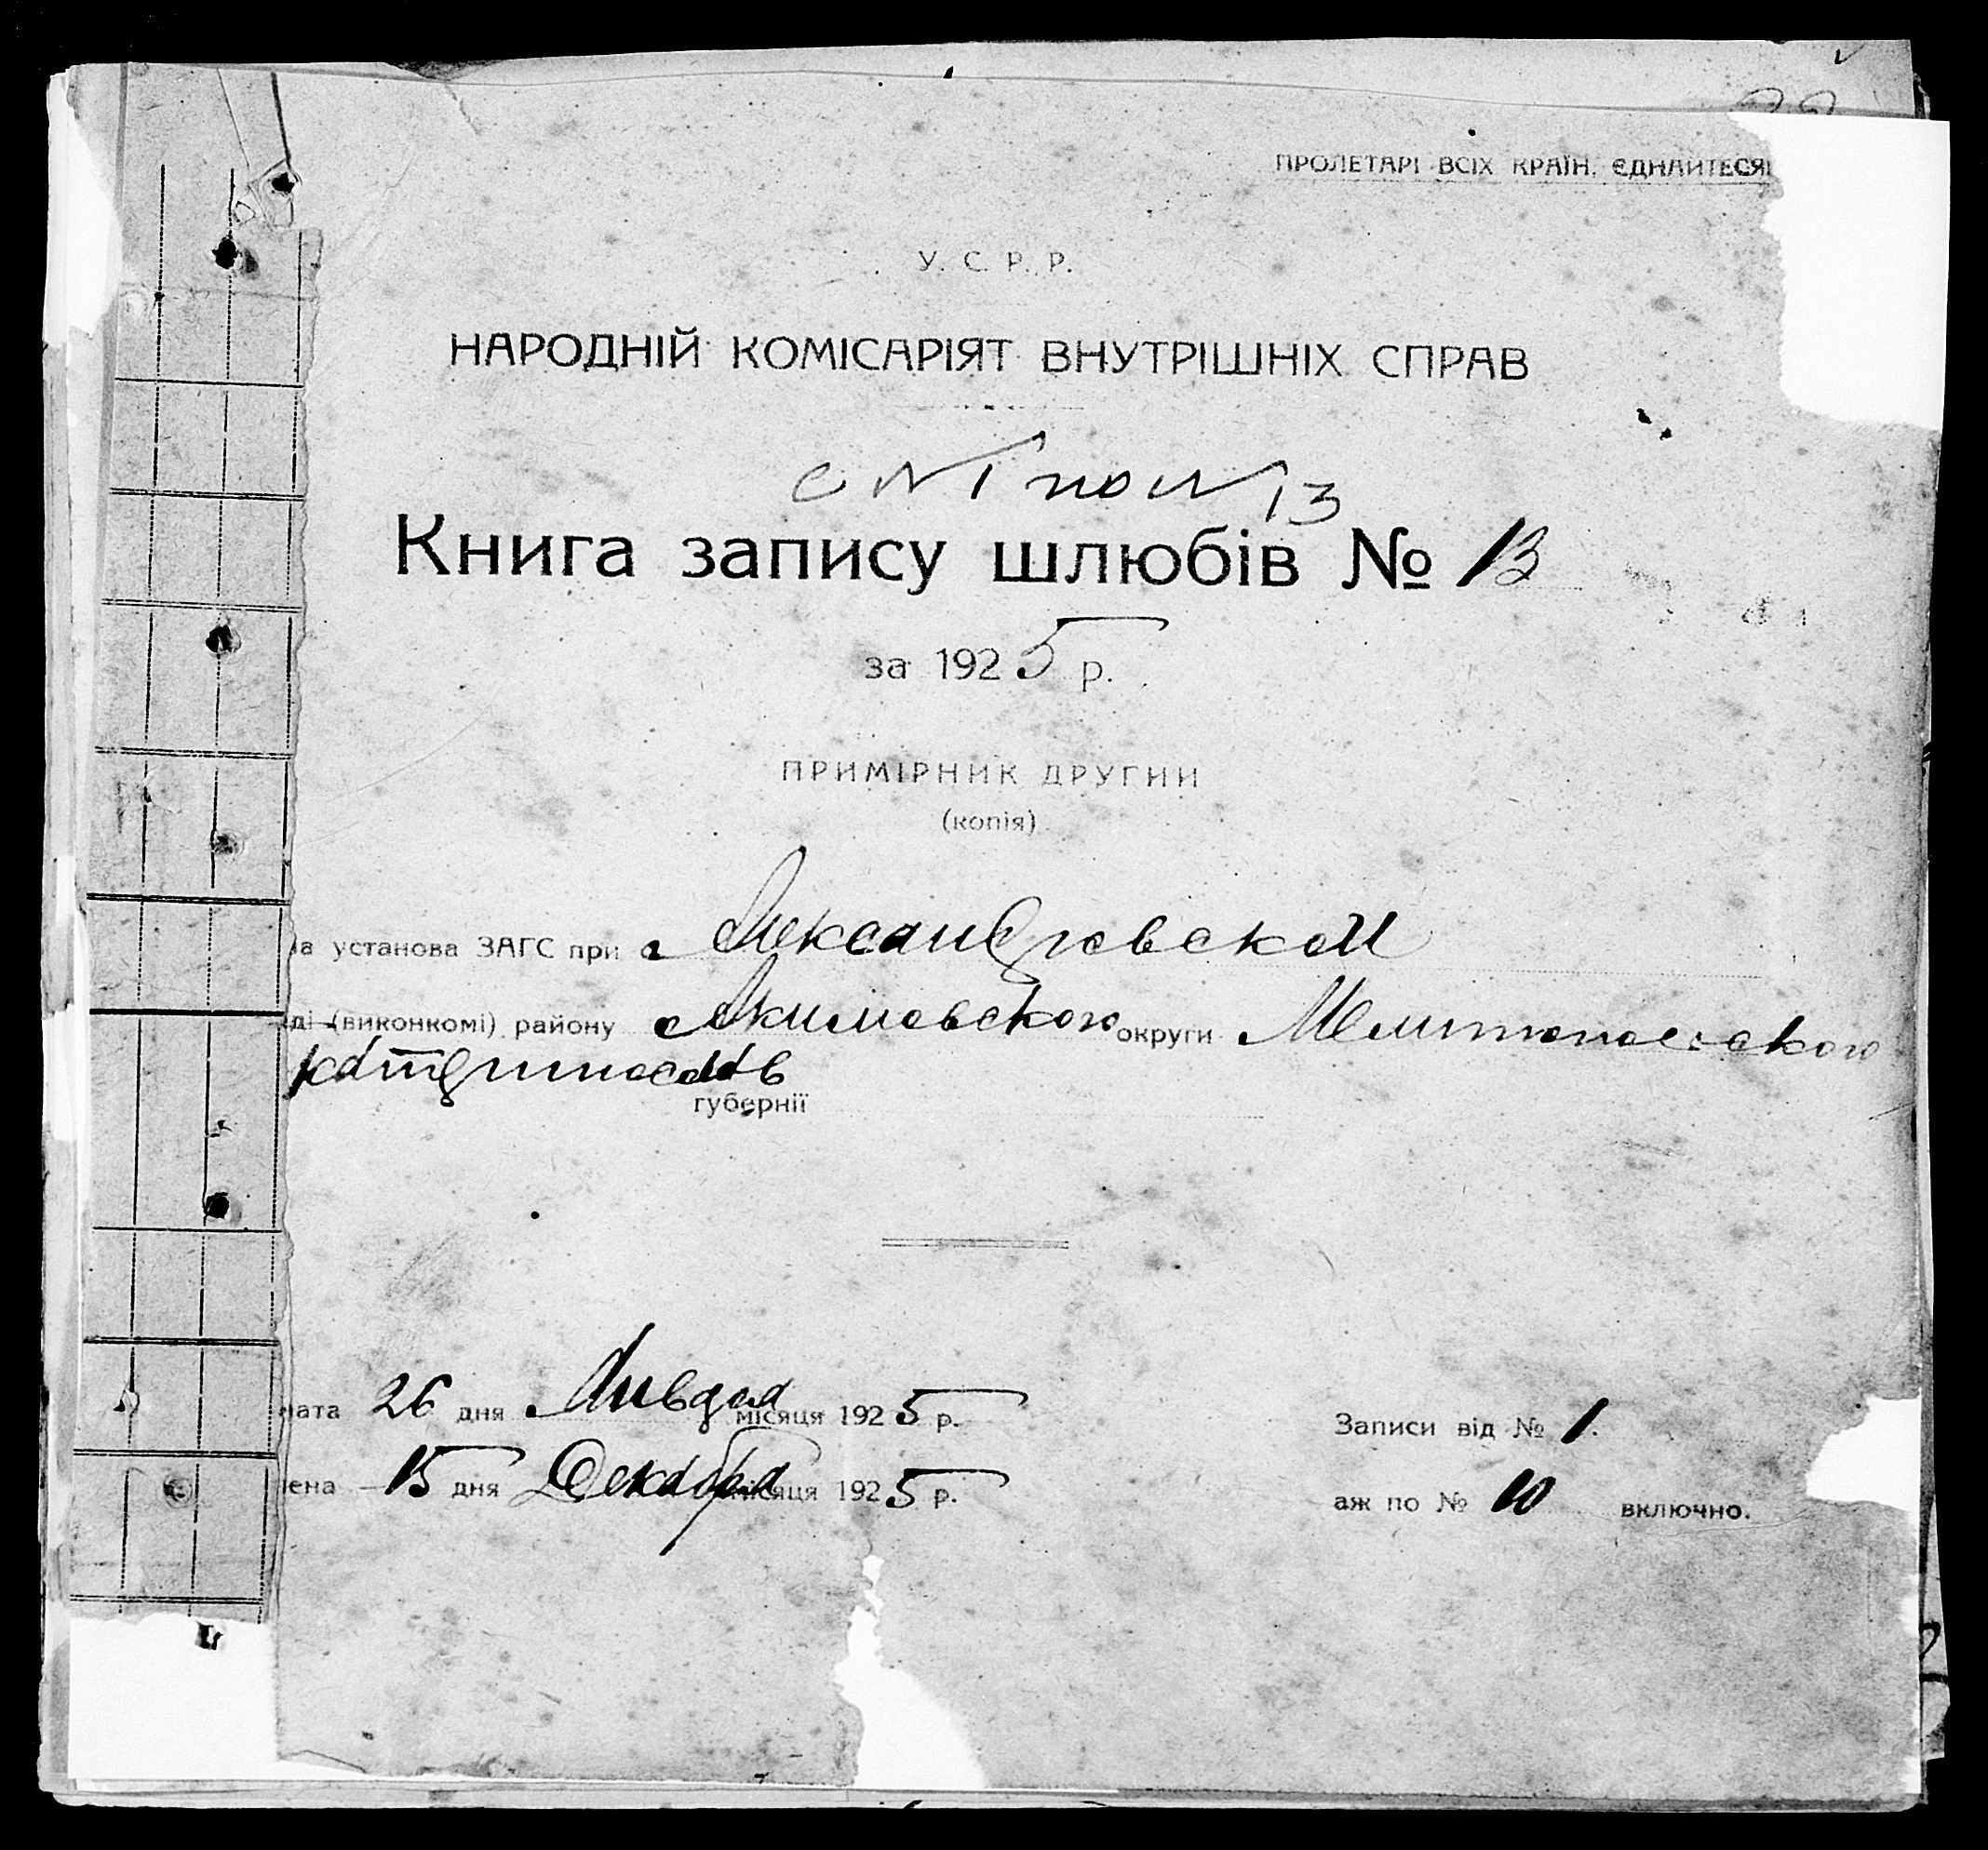 ПРОЛЕТАРІ ВСІХ КРАЇН, ЄДНАЙТЕСЯ!
У. С. Р. Р.
НАРОДНІЙ КОМІСАРІЯТ ВНУТРІШНІХ СПРАВ
с №1 по № 13
Книга запису шлюбів № 13
за 1925 р.
ПРИМІРНИК ДРУГИЙ
(копія)
на установа ЗАГС при Александровской
ді (виконкомі) району Акимовского округи Мелитопольского
губернії
чата 26 дня Января місяця 1925 р.
чена 15 дня Декабря місяця 1925 р.
Записи від № 1.
аж по № 10 включно.